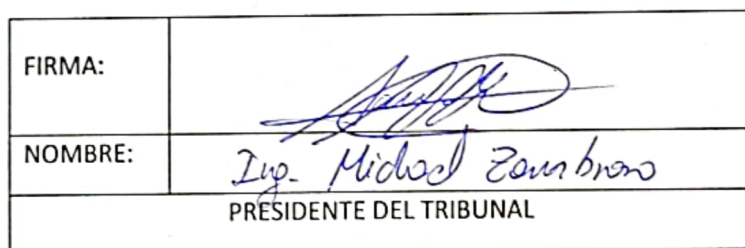 FIRMA:
NOMBRE: Ing. Michael Zambrano
PRESIDENTE DEL TRIBUNAL